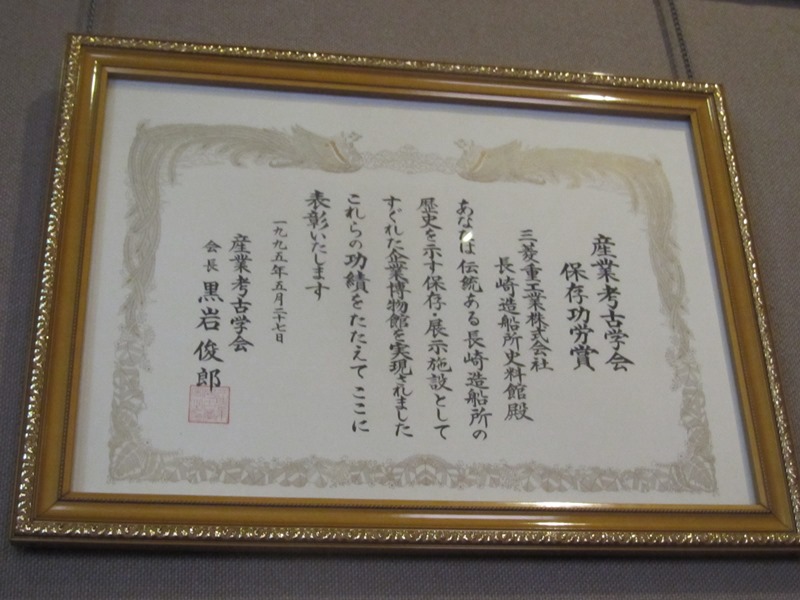 産業考古学会
保存功労賞
三菱重工業株式会社
長崎造船所史料館殿
あなたは伝統ある長崎造船所の
歴史を示す保存・展示施設として
すぐれた企業博物館を実現されました
これらの功績をたたえてここに
表彰いたします
一九九五年五月二十七日
産業考古学会
会長 黒岩俊郎